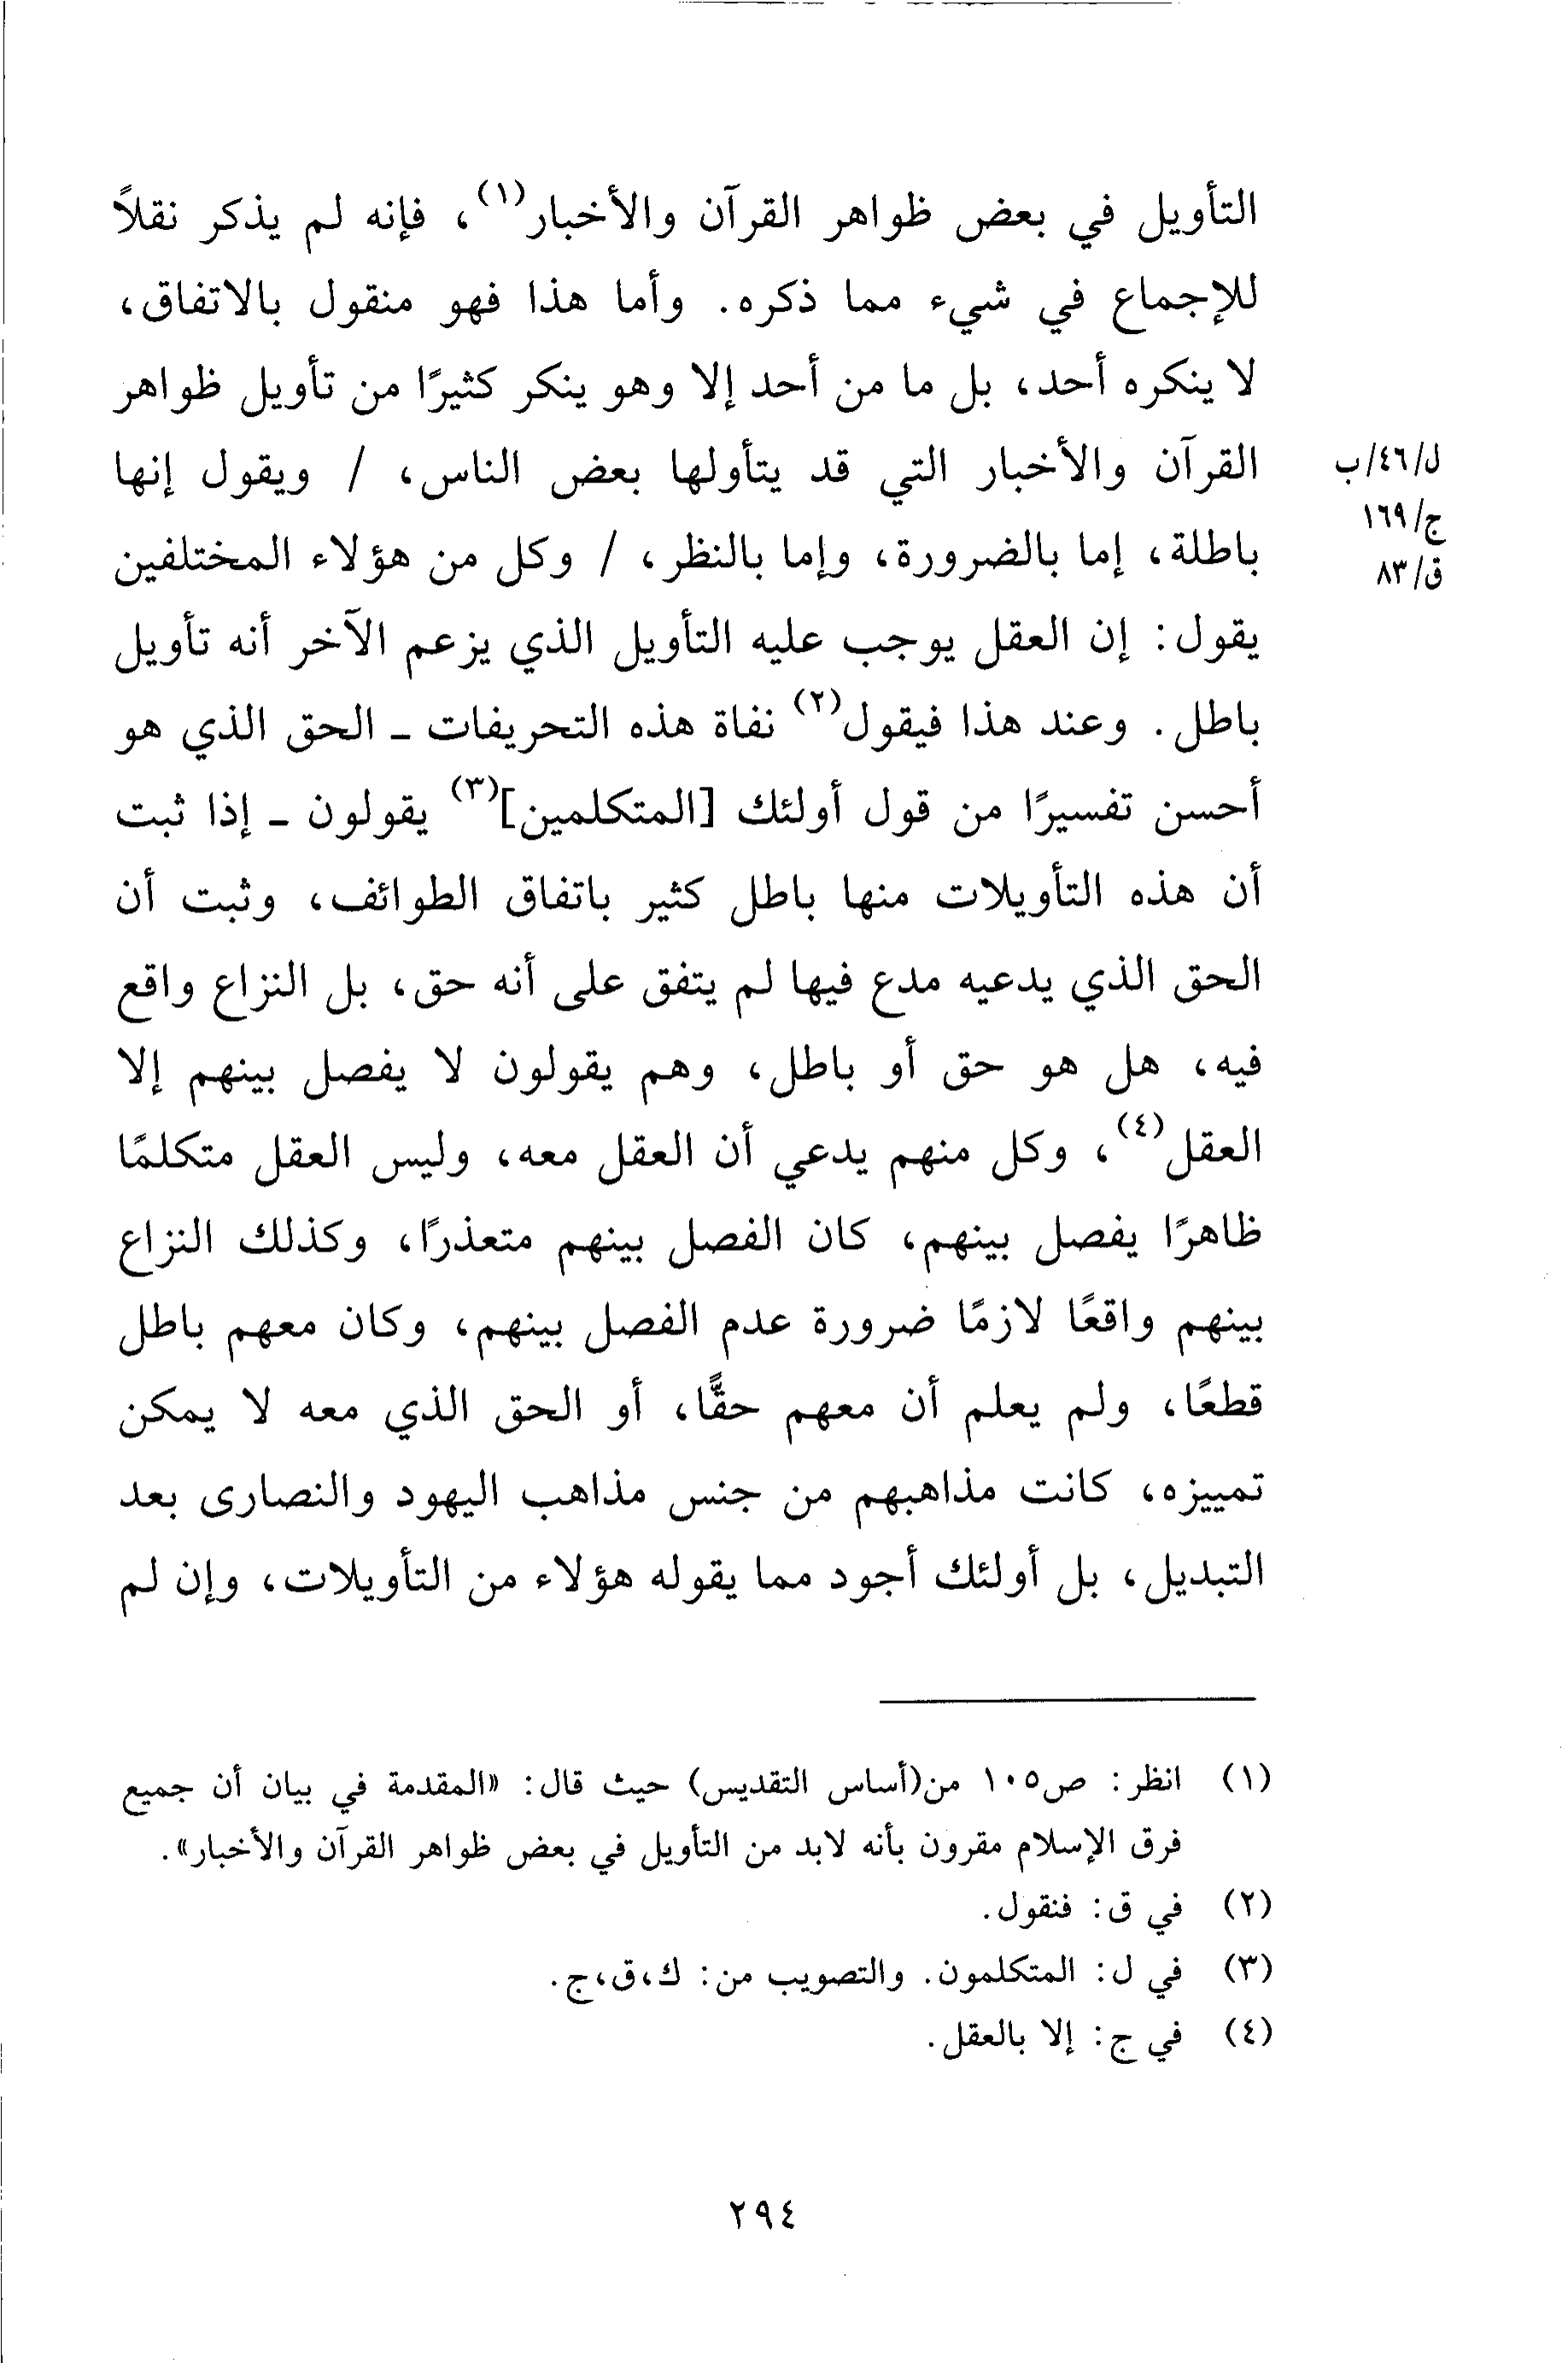 التأويل في بعض ظواهر القرآن والأخبار(١)، فإنه لم يذكر نقلاً
للإجماع في شيء مما ذكره. وأما هذا فهو منقول بالاتفاق،
لا ينكره أحد، بل ما من أحد إلا وهو ينكر كثيرًا من تأويل ظواهر
القرآن والأخبار التي قد يتأولها بعض الناس، / ويقول إنها
ل/٤٦/ب
باطلة، إما بالضرورة، وإما بالنظر، / وكل من هؤلاء المختلفين
ج/١٦٩
ق/٨٣
يقول: إن العقل يوجب عليه التأويل الذي يزعم الآخر أنه تأويل
باطل. وعند هذا فيقول(٢) نفاة هذه التحريفات - الحق الذي هو
أحسن تفسيرًا من قول أولئك [المتكلمين](٣) يقولون - إذا ثبت
أن هذه التأويلات منها باطل كثير باتفاق الطوائف، وثبت أن
الحق الذي يدعيه مدع فيها لم يتفق على أنه حق، بل النزاع واقع
فيه، هل هو حق أو باطل، وهم يقولون لا يفصل بينهم إلا
العقل(٤)، وكل منهم يدعي أن العقل معه، وليس العقل متكلمًا
ظاهرًا يفصل بينهم، كان الفصل بينهم متعذرًا، وكذلك النزاع
بينهم واقعًا لازمًا ضرورة عدم الفصل بينهم، وكان معهم باطل
قطعًا، ولم يعلم أن معهم حقًّا، أو الحق الذي معه لا يمكن
تمييزه، كانت مذاهبهم من جنس مذاهب اليهود والنصارى بعد
التبديل، بل أولئك أجود مما يقوله هؤلاء من التأويلات، وإن لم
(١) انظر: ص١٠٥ من(أساس التقديس) حيث قال: «المقدمة في بيان أن جميع
فرق الإسلام مقرون بأنه لابد من التأويل في بعض ظواهر القرآن والأخبار».
(٢) في ق: فنقول.
(٣) في ل: المتكلمون. والتصويب من: ك،ق،ج.
(٤) في ج: إلا بالعقل.
٢٩٤